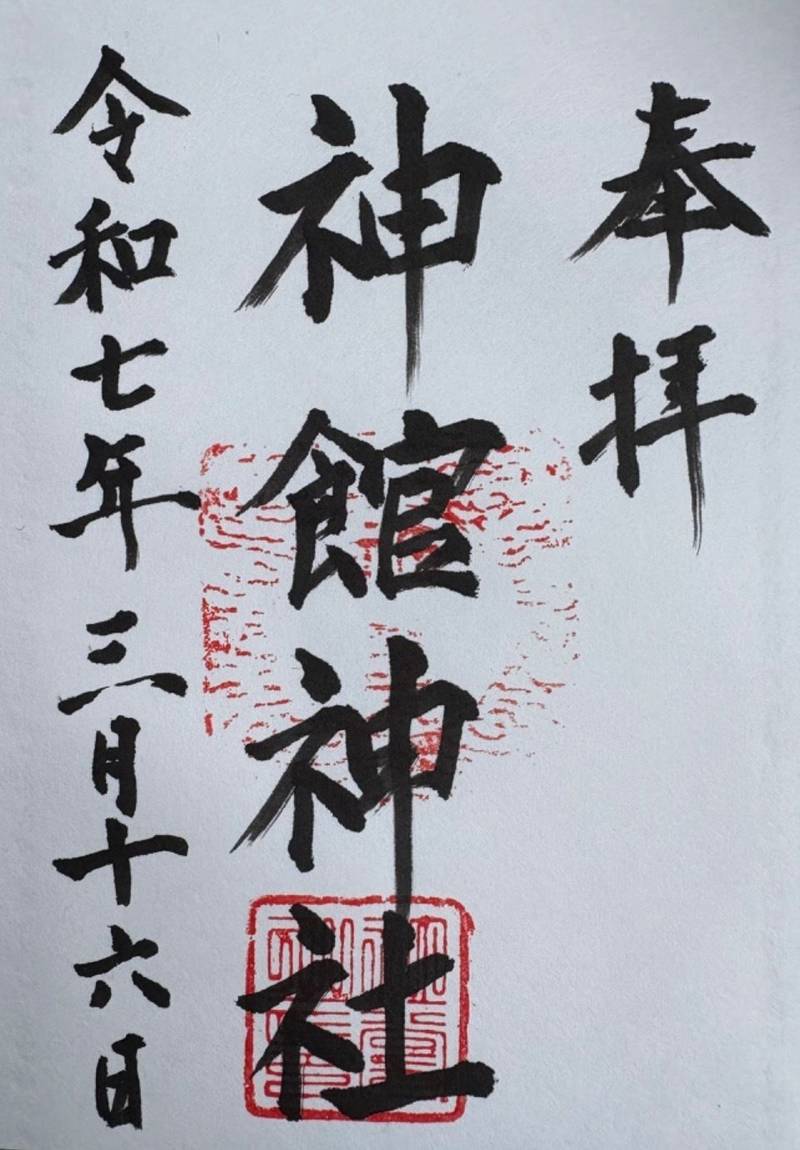 奉拝
神館神社
令和七年三月十六日